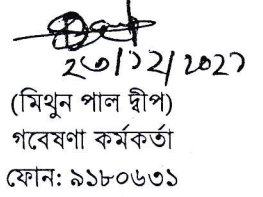 ২৩/১২/২০২১
(মিথুন পাল দ্বীপ)
গবেষণা কর্মকর্তা
ফোন: ৯১৮০৬৩১